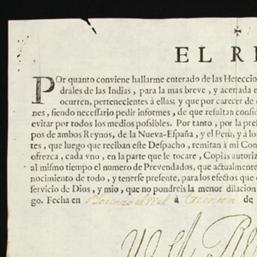 EL RE
POr quanto conviene hallarme enterado de las Ereccio
drales de las Indias, para la mas breve, y acertada e
ocurren, pertenecientes à ellas; y que por carecer de e
nes, siendo necessario pedir informes, de que resultan consid
evitar por todos los medios possibles. Por tanto, por la prese
pos de ambos Reynos, de la Nueva-España, y el Perù, y à los
tes, que luego que reciban este Despacho, remitan à mi Con
ofrezca, cada vno, en la parte que le tocare, Copias autoriz
al mismo tiempo el numero de Prevendados, que actualmente
nocimiento de todo, y tenerse presente, para los efectos que
servicio de Dios, y mio, que no pondreis la menor dilacion
go. Fecha en de
Yo el Re